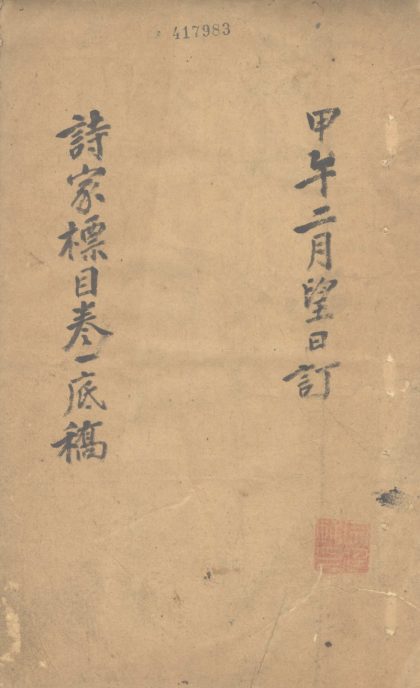 417983
甲午二月望日訂
詩家標目卷一底稿